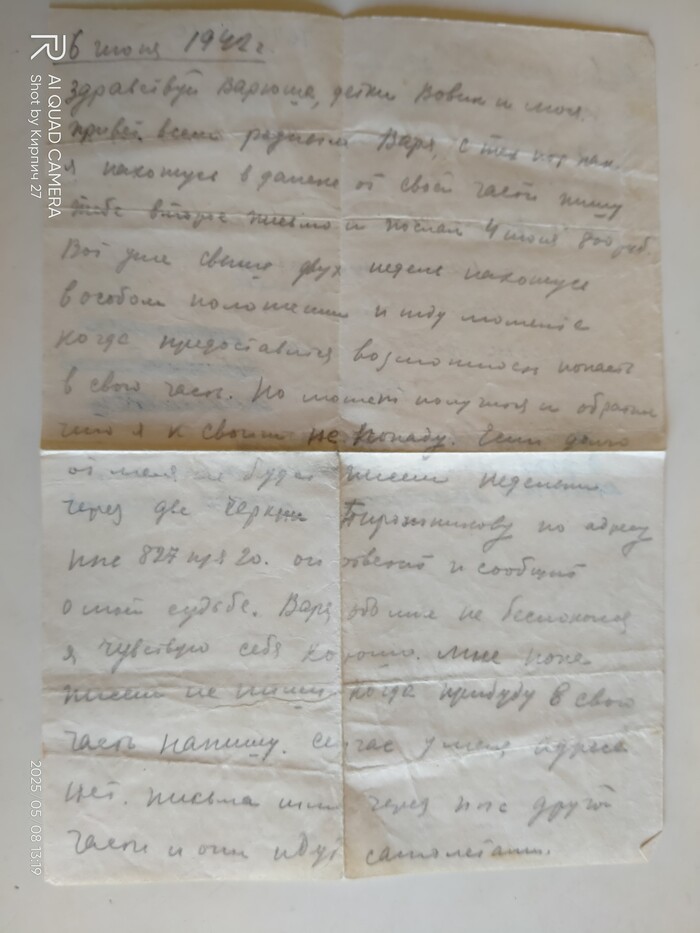 6 июня 1942 г.
Здравствуй Варюша, детки Вовик и
привет всем родным Варя, с тех пор как
я нахожусь в далеке от своей части пишу
тебе второе письмо и послал 4 июня 800 руб.
Вот уже свыше двух недель нахожусь
в особом положении и жду момента
когда предоставится возможность попасть
в свою часть. Но может получится и обратно
что я к своим не попаду. Если долго
от меня не будет писем недельки
через две черкни по адресу
ппс 827 п/я 20. он ответит и сообщит
о моей судьбе. Варя обо мне не беспокойся
я чувствую себя хорошо. Мне пока
писем не пиши когда прибуду в свою
часть напишу. Сейчас у меня адреса
нет. письма шлю через ппс другой
части и они идут самолетами.
AI QUAD CAMERA
Shot by Кирпич 27
2025 05 08 13:19